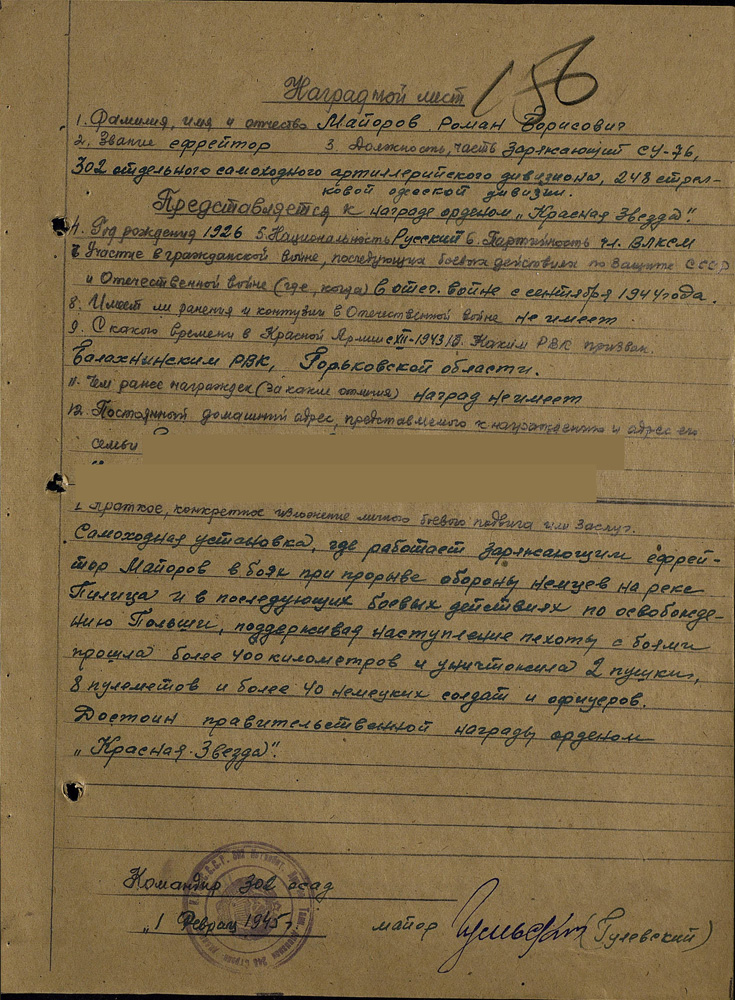 186
Наградной лист
1. Фамилия, имя и отчество Майоров Роман Борисович
2. Звание ефрейтор 3. Должность, часть заряжающий СУ-76,
302 отдельного самоходного артиллерийского дивизиона, 248 стрел-
ковой одесской дивизии.
Представляется к награде орденом „Красная Звезда".
4. Год рождения 1926 5. Национальность Русский 6. Партийность чл. ВЛКСМ
7. Участие в гражданской войне, последующих боевых действиях по защите СССР
и Отечественной войне (где, когда) в отеч. войне с сентября 1944 года.
8. Имеет ли ранения и контузии в Отечественной войне не имеет
9. С какого времени в Красной Армии с XII-1943 10. Каким РВК призван.
Балахнинским РВК, Горьковской области.
11. Чем ранее награжден (за какие отличия) наград не имеет
12. Постоянный домашний адрес, представляемого к награждению и адрес его
семьи
1. Краткое, конкретное изложение личного боевого подвига или заслуг.
Самоходная установка, где работает заряжающим ефрей-
тор Майоров в боях при прорыве обороны немцев на реке
Пилица и в последующих боевых действиях по освобожде-
нию Польши, поддерживая наступление пехоты с боями
прошла более 400 километров и уничтожила 2 пушки,
8 пулеметов и более 40 немецких солдат и офицеров.
Достоин правительственной награды орденом
„Красная Звезда".
Командир 302 осад
„1 Февраля 1945 г
майор (Гулевский)